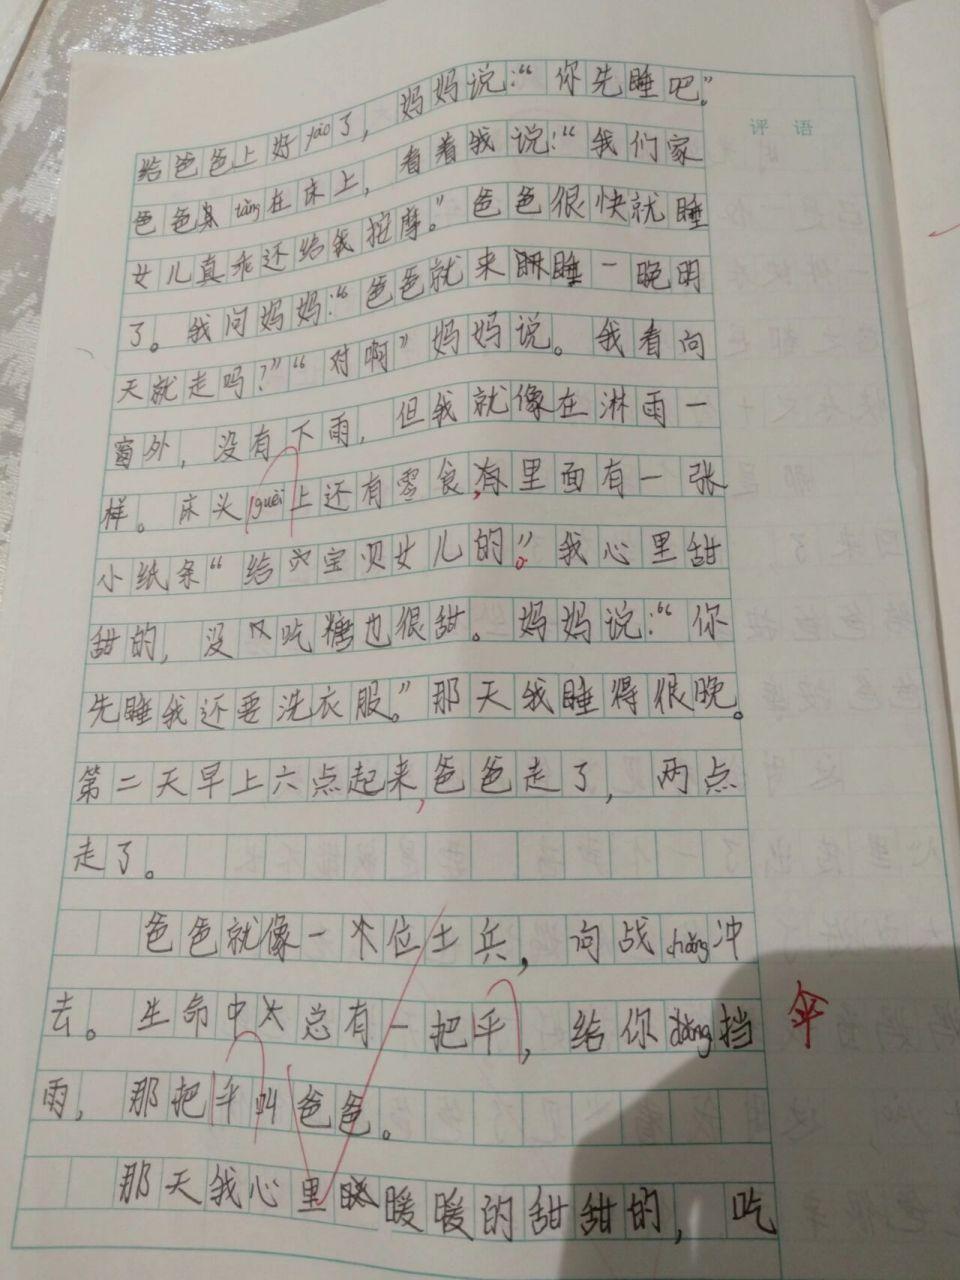 给爸爸上好yào了，妈妈说：“你先睡吧。”
爸爸tǎng在床上，看着我说：“我们家
女儿真乖还给我按摩。”爸爸很快就睡
了。我问妈妈：“爸爸就来睡一晚明
天就走吗？”“对啊”妈妈说。我看向
窗外，没有下雨，但我就像在淋雨一
样。床头guèi上还有零食，里面有一张
小纸条“给宝贝女儿的”。我心里甜
甜的，没吃糖也很甜。妈妈说：“你
先睡我还要洗衣服。”那天我睡得很晚。
第二天早上六点起来，爸爸走了，两点
走了。
爸爸就像一位士兵，向战chǎng冲
去。生命中总有一把平，给你挡
雨，那把平叫爸爸。
那天我心里暖暖的甜甜的，吃
评语
伞